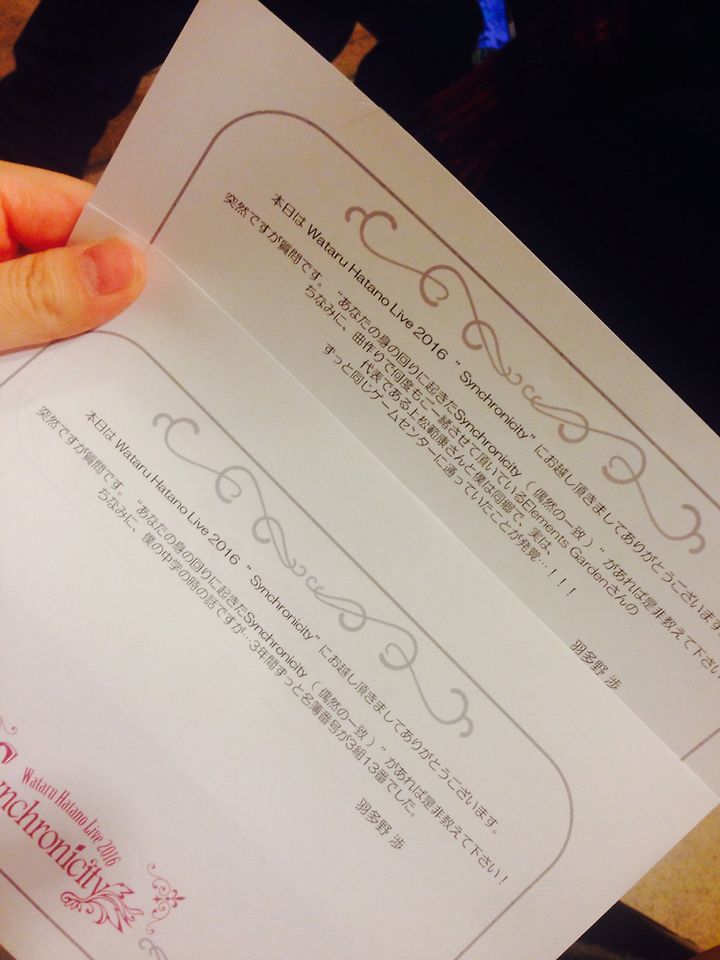 本日は Wataru Hatano Live 2016 " Synchronicity" にお越し頂きましてありがとうございます。
突然ですが質問です。 "あなたの身の回りに起きたSynchronicity（偶然の一致）"があれば是非教えて下さい！
ちなみに、曲作りで何度もご一緒させて頂いているElements Gardenさんの
代表である上松範康さんと僕は同郷で、実は、
ずっと同じゲームセンターに通っていたことが発覚…！！！
羽多野 渉
本日は Wataru Hatano Live 2016 " Synchronicity" にお越し頂きましてありがとうございます。
突然ですが質問です。 "あなたの身の回りに起きたSynchronicity（偶然の一致）"があれば是非教えて下さい！
ちなみに、僕の中学の時の話ですが…3年間ずっと名簿番号が3組13番でした。
羽多野 渉
Wataru Hatano Live 2016
Synchronicity